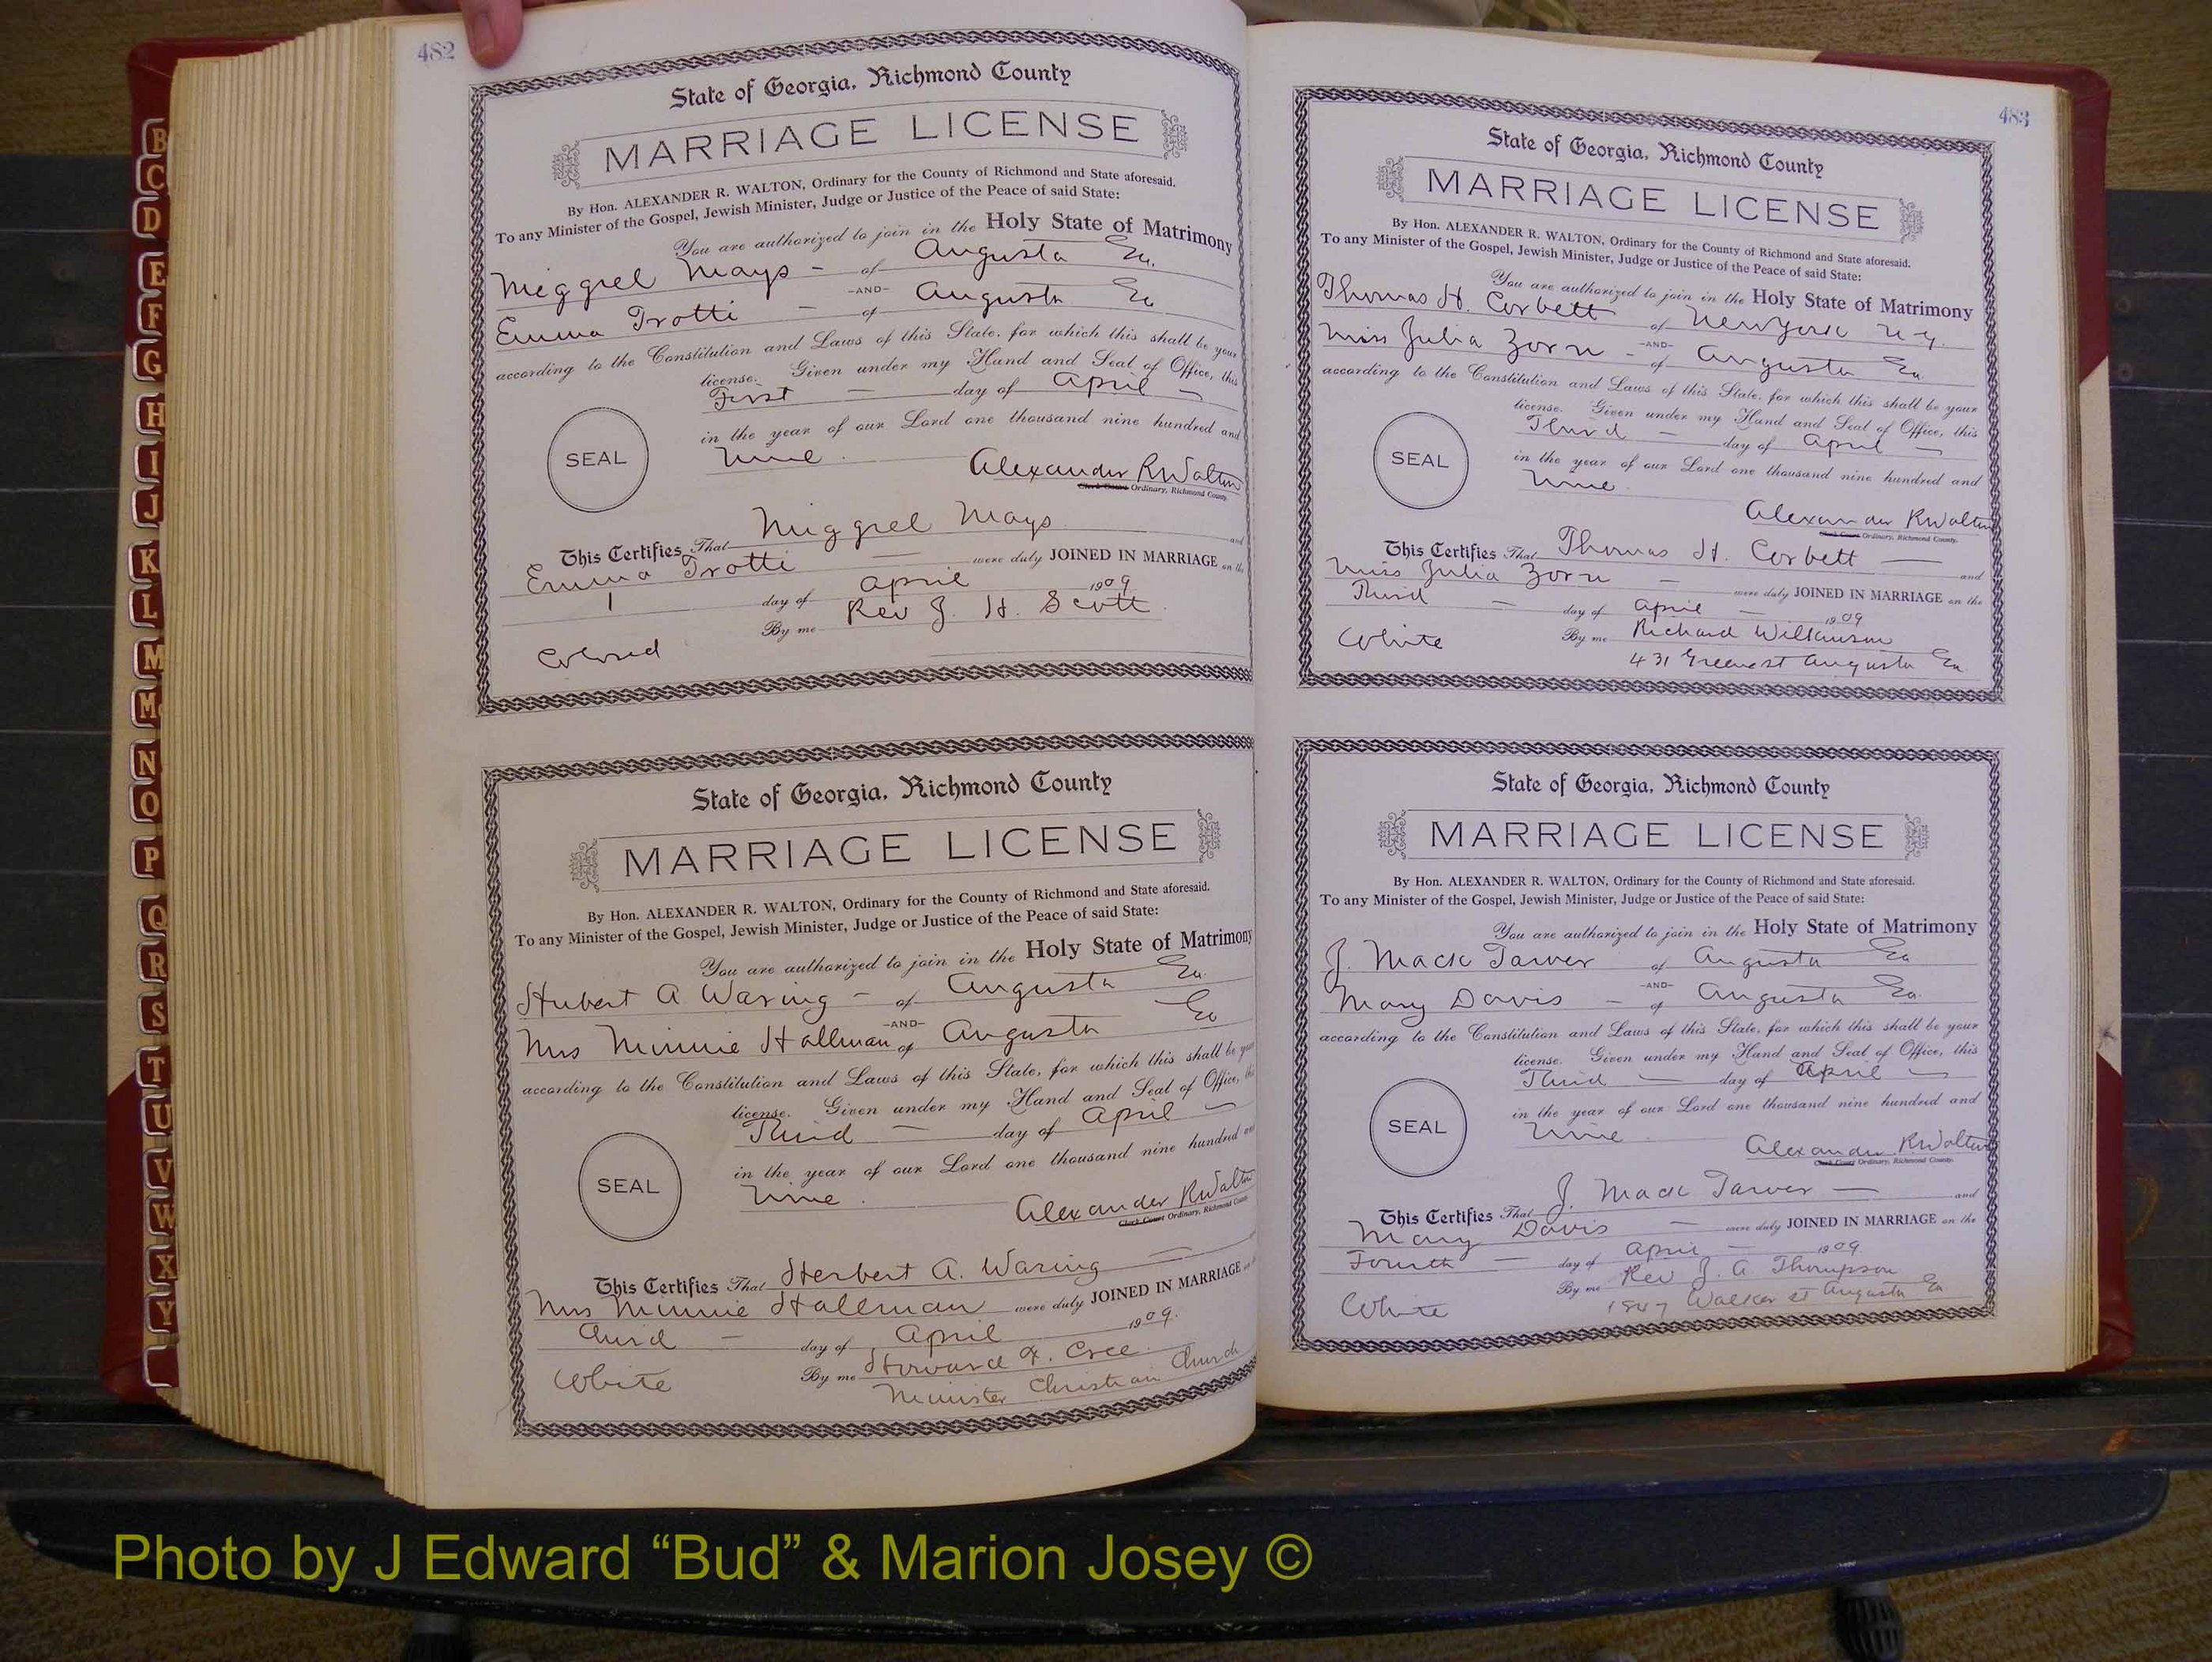 482
State of Georgia, Richmond County
MARRIAGE LICENSE
By Hon. ALEXANDER R. WALTON, Ordinary for the County of Richmond and State aforesaid.
To any Minister of the Gospel, Jewish Minister, Judge or Justice of the Peace of said State:
You are authorized to join in the Holy State of Matrimony
Miggrel Mays - of Augusta Ga.
-AND-
Emma Trotti - of Augusta Ga
according to the Constitution and Laws of this State, for which this shall be your
license. Given under my Hand and Seal of Office, this
First - day of April
in the year of our Lord one thousand nine hundred and
SEAL
nine.
Alexander R Walton
Clerk Court Ordinary, Richmond County.
This Certifies That Miggrel Mays and
Emma Trotti were duly JOINED IN MARRIAGE on the
1 day of April 1909
By me Rev J. H. Scott
Colored
State of Georgia, Richmond County
MARRIAGE LICENSE
By Hon. ALEXANDER R. WALTON, Ordinary for the County of Richmond and State aforesaid.
To any Minister of the Gospel, Jewish Minister, Judge or Justice of the Peace of said State:
You are authorized to join in the Holy State of Matrimony
Hubert A Waring - of Augusta Ga.
-AND-
Mrs Minnie Hallman of Augusta Ga
according to the Constitution and Laws of this State, for which this shall be your
license. Given under my Hand and Seal of Office, this
Third - day of April
in the year of our Lord one thousand nine hundred and
SEAL
nine.
Alexander R Walton
Clerk Court Ordinary, Richmond County
This Certifies That Herbert A. Waring
Mrs Minnie Hallman were duly JOINED IN MARRIAGE
Third - day of April 1909.
By me Howard T. Cree.
White
Minister Christian Church
483
State of Georgia, Richmond County
MARRIAGE LICENSE
By Hon. ALEXANDER R. WALTON, Ordinary for the County of Richmond and State aforesaid.
To any Minister of the Gospel, Jewish Minister, Judge or Justice of the Peace of said State:
You are authorized to join in the Holy State of Matrimony
Thomas H. Corbett of New York N.Y.
-AND-
Miss Julia Zorn - of Augusta Ga.
according to the Constitution and Laws of this State, for which this shall be your
license. Given under my Hand and Seal of Office, this
Third - day of April
in the year of our Lord one thousand nine hundred and
SEAL
nine
Alexander R Walton
Clerk Court Ordinary, Richmond County.
This Certifies That Thomas H. Corbett and
Miss Julia Zorn were duly JOINED IN MARRIAGE on the
Third - day of April 1909
White By me Richard Wilkinson
431 Greene st Augusta Ga
State of Georgia, Richmond County
MARRIAGE LICENSE
By Hon. ALEXANDER R. WALTON, Ordinary for the County of Richmond and State aforesaid.
To any Minister of the Gospel, Jewish Minister, Judge or Justice of the Peace of said State:
You are authorized to join in the Holy State of Matrimony
J. Mack Tarver of Augusta Ga
-AND-
Mary Davis - of Augusta Ga.
according to the Constitution and Laws of this State, for which this shall be your
license. Given under my Hand and Seal of Office, this
Third - day of April
in the year of our Lord one thousand nine hundred and
SEAL
nine
Alexander R Walton
Clerk Court Ordinary, Richmond County.
This Certifies That J. Mack Tarver and
Mary Davis were duly JOINED IN MARRIAGE on the
Fourth - day of April 1909.
By me Rev J. A. Thompson
White
1847 Walker st Augusta Ga
B
C
D
E
F
G
H
I
J
K
L
M
Mc
N
O
P
Q
R
S
T
U
V
W
X
Y
Photo by J Edward “Bud” & Marion Josey ©